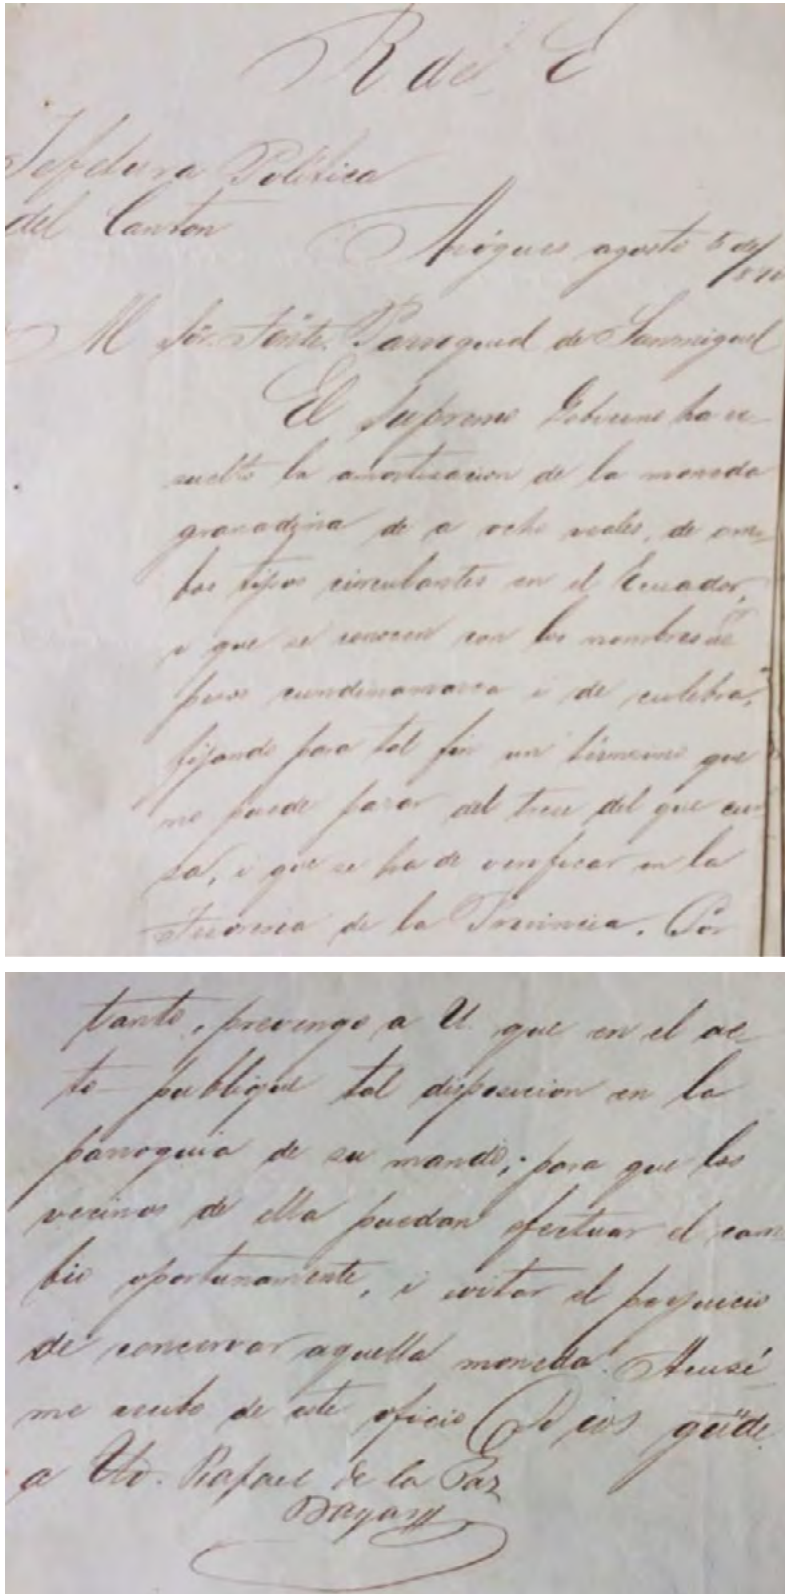 R del E
Jefetura Política
del Canton
Mógues agosto 5 de/
Al Sōr. Tente. Parroquial de Sanmiguel
El Supremo Gobierno ha re-
suelto la amortizacion de la moneda
granadina de a ocho reales, de am-
bos tipos circulantes en el Ecuador,
i que se conocen con los nombres de
pesos cundinamarca i de culebra,
fijando para tal fin un término que
no puede pasar del trece del que cur-
sa, i que se ha de verificar en la
Tesoreria de la Provincia. Por
tanto, prevengo a U. que en el ac-
to publique tal disposicion en la
parroquia de su mando; para que los
vecinos de ella puedan efectuar el cam-
bio oportunamente, i evitar el perjuicio
de concervar aquella moneda. Acusé-
me recibo de este oficio Dios güíde.
a Ud. Rafael de la Paz